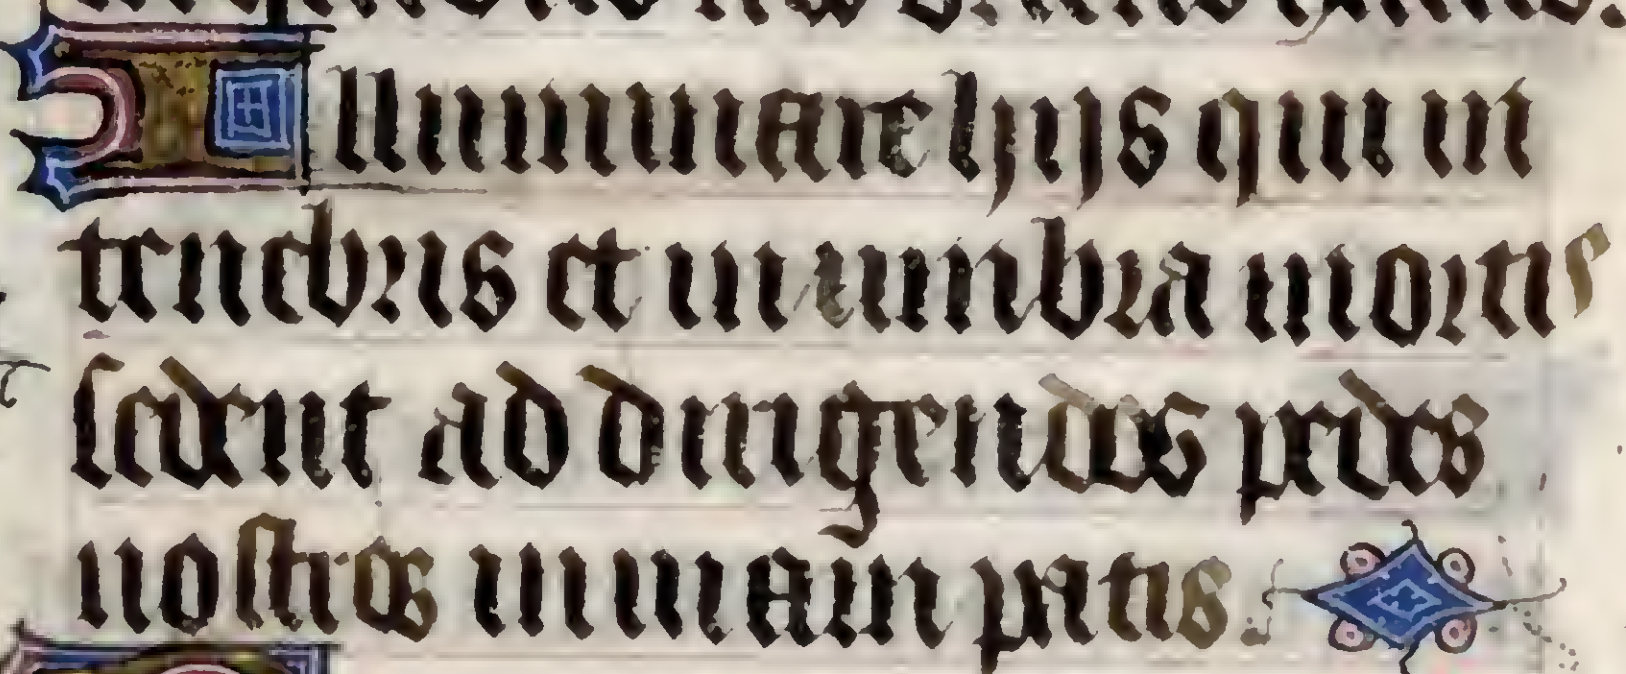 Illuminare hijs qui in
tenebris et in umbra mortis
sedent ad dirigendos pedes
nostros in uiam pacis.